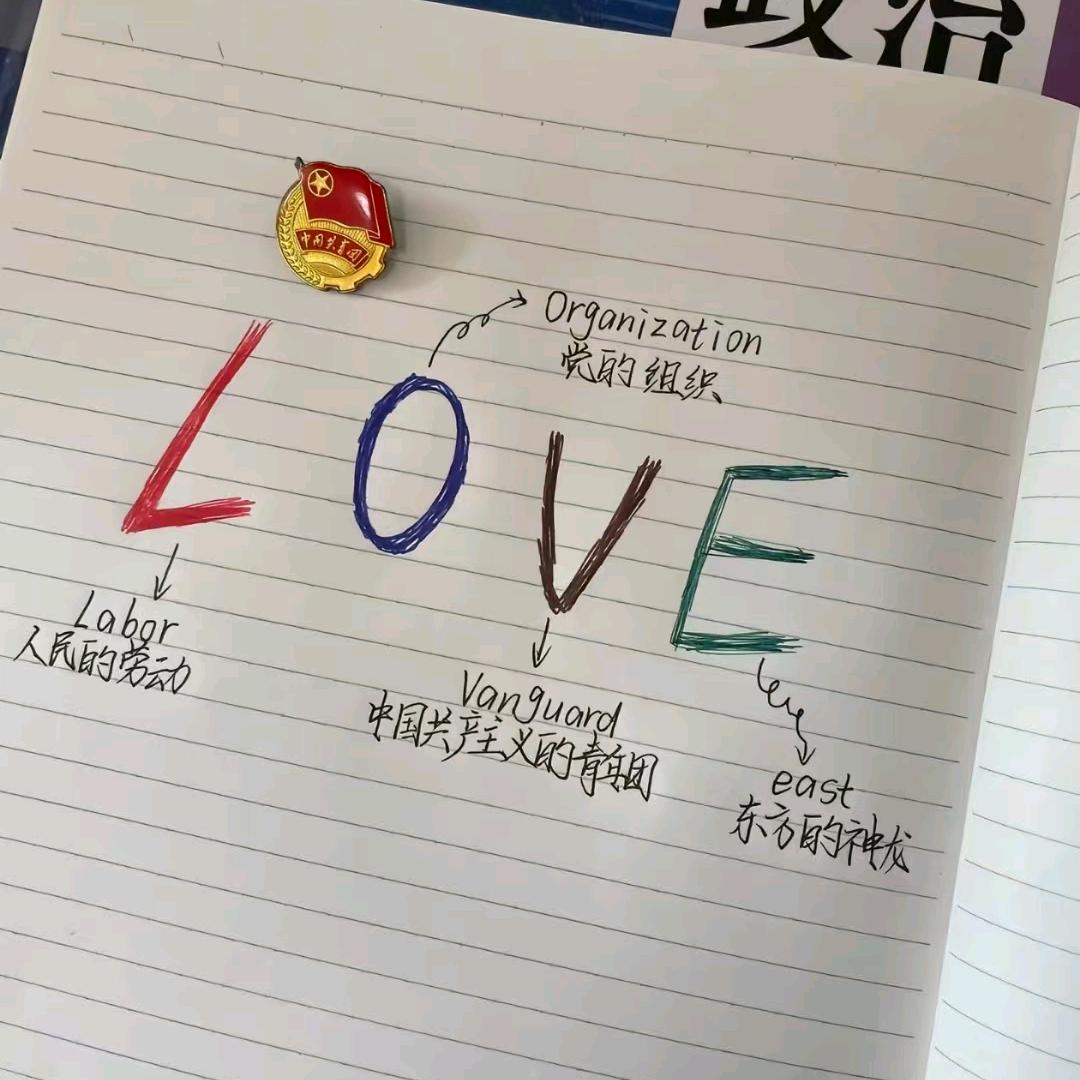 政治
中国共青团
Organization
党的组织
LOVE
Labor
人民的劳动
Vanguard
中国共产主义的青年团
east
东方的神龙